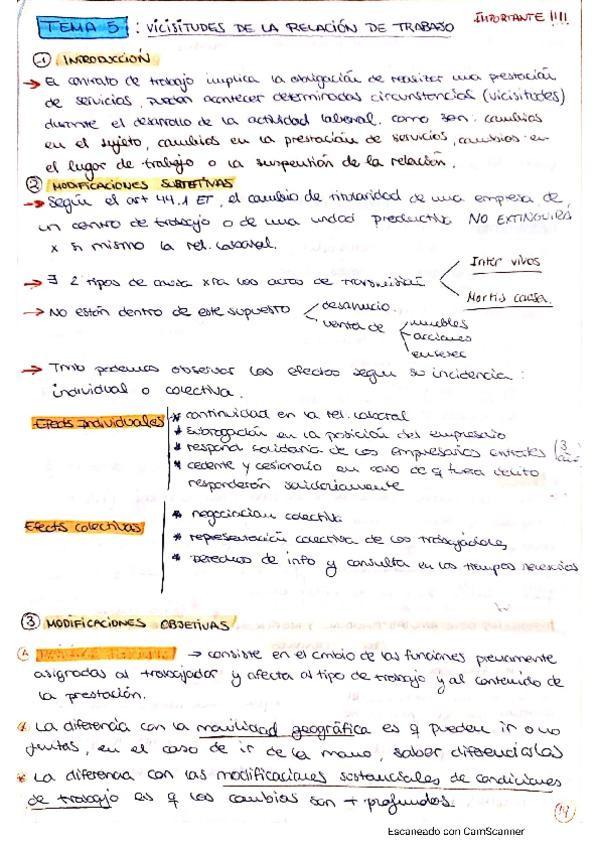 TEMA 5: VICISITUDES DE LA RELACIÓN DE TRABAJO IMPORTANTE !!!!
① INTRODUCCIÓN
→ El contrato de trabajo implica la obligación de realizar una prestación
de servicios, pueden acontecer determinadas circunstancias (vicisitudes)
durante el desarrollo de la actividad laboral. como son: cambios
en el sujeto, cambios en la prestación de servicios, cambios en
el lugar de trabajo o la suspensión de la relación.
② MODIFICACIONES SUBJETIVAS
→ Según el art 44.1 ET, el cambio de titularidad de una empresa, de
un centro de trabajo o de una unidad productiva NO EXTINGUIRÁ
x si mismo la rel. laboral.
→ ∃ 2 tipos de causa xra los actos de transmisión
Inter vivos
Mortis causa.
→ No están dentro de este supuesto
desahucio.
venta de
muebles
acciones
enseres
→ Tmb podemos observar los efectos según su incidencia:
individual o colectiva.
Efects Individuales
* continuidad en la rel. laboral
* subrogación en la posición del empresario
* respons solidaria de los empresarios (3
* cedente y cesionario en caso de q fuera delito
responderán solidariamente
Efects colectivos
* negociación colectiva
* representación colectiva de los trabajadores
* Derechos de info y consulta en los tiempos necesarios
③ MODIFICACIONES OBJETIVAS
Ⓐ → consiste en el cmbio de las funciones previamente
asignadas al trabajador y afecta al tipo de trabajo y al contenido de
la prestación.
* La diferencia con la movilidad geográfica es q pueden ir o no
juntas, en el caso de ir de la mano, saber diferenciarlas
* La diferencia con las modificaciones sustanciales de condiciones
de trabajo es q los cambios son + profundos.
Escaneado con CamScanner